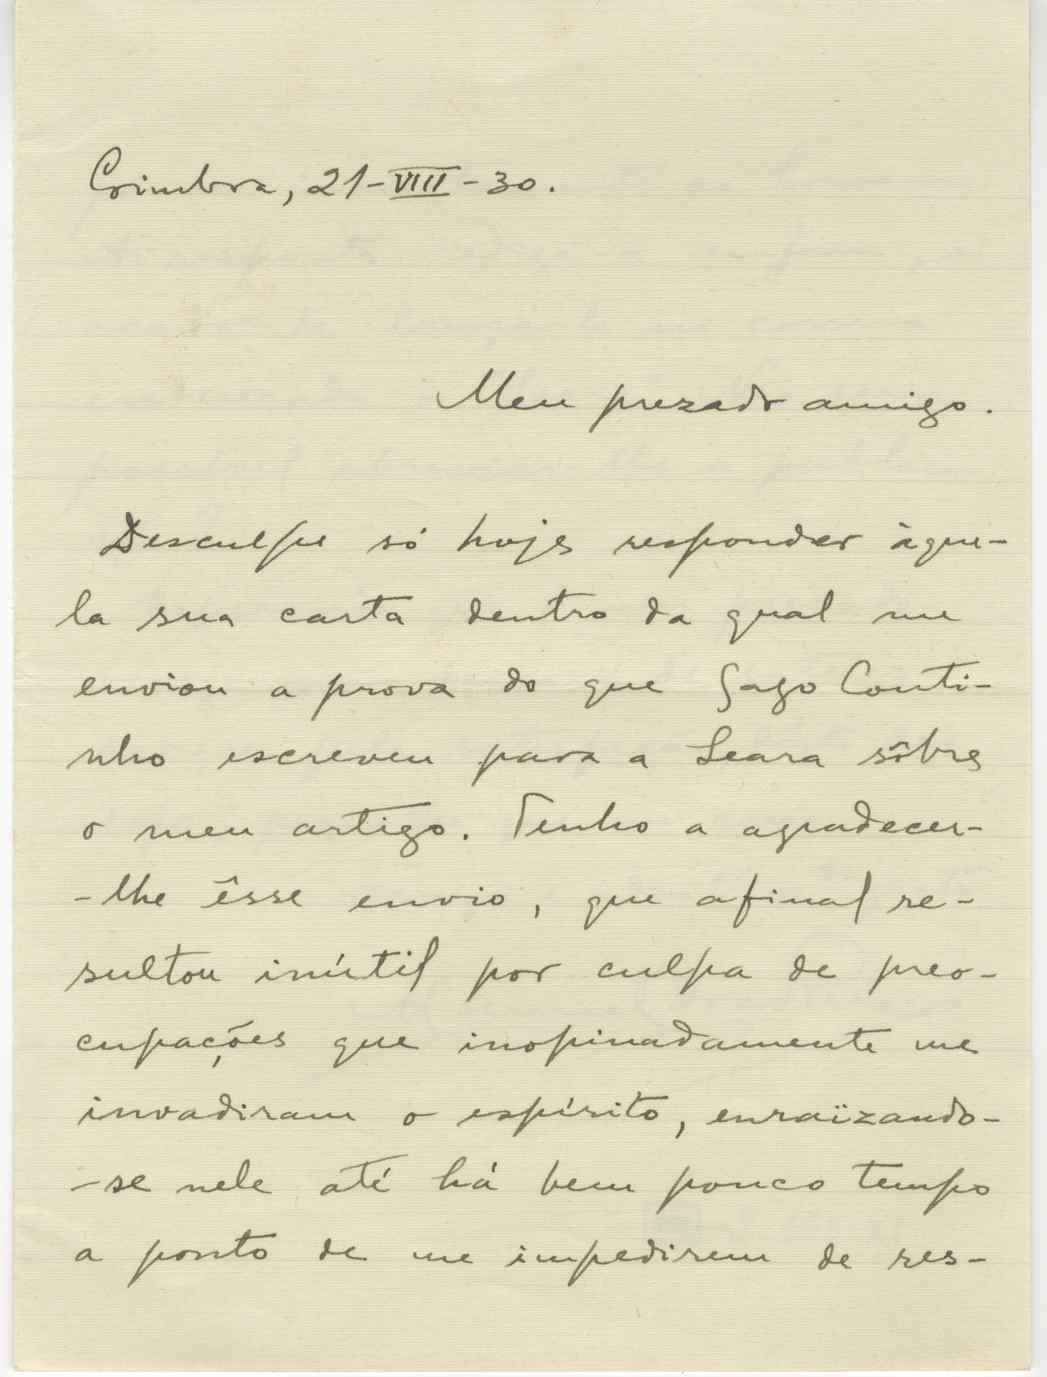 Coimbra, 21-VIII-30.
Meu prezado amigo.
Desculpe só hoje responder àque-
la sua carta dentro da qual me
enviou a prova do que Gago Couti-
nho escreveu para a Seara sôbre
o meu artigo. Tenho a agradecer-
-lhe êsse envio, que afinal re-
sultou inútil por culpa de preo-
cupações que inopinadamente me
invadiram o espírito, enraïzando-
-se nele até há bem pouco tempo
a ponto de me impedirem de res-